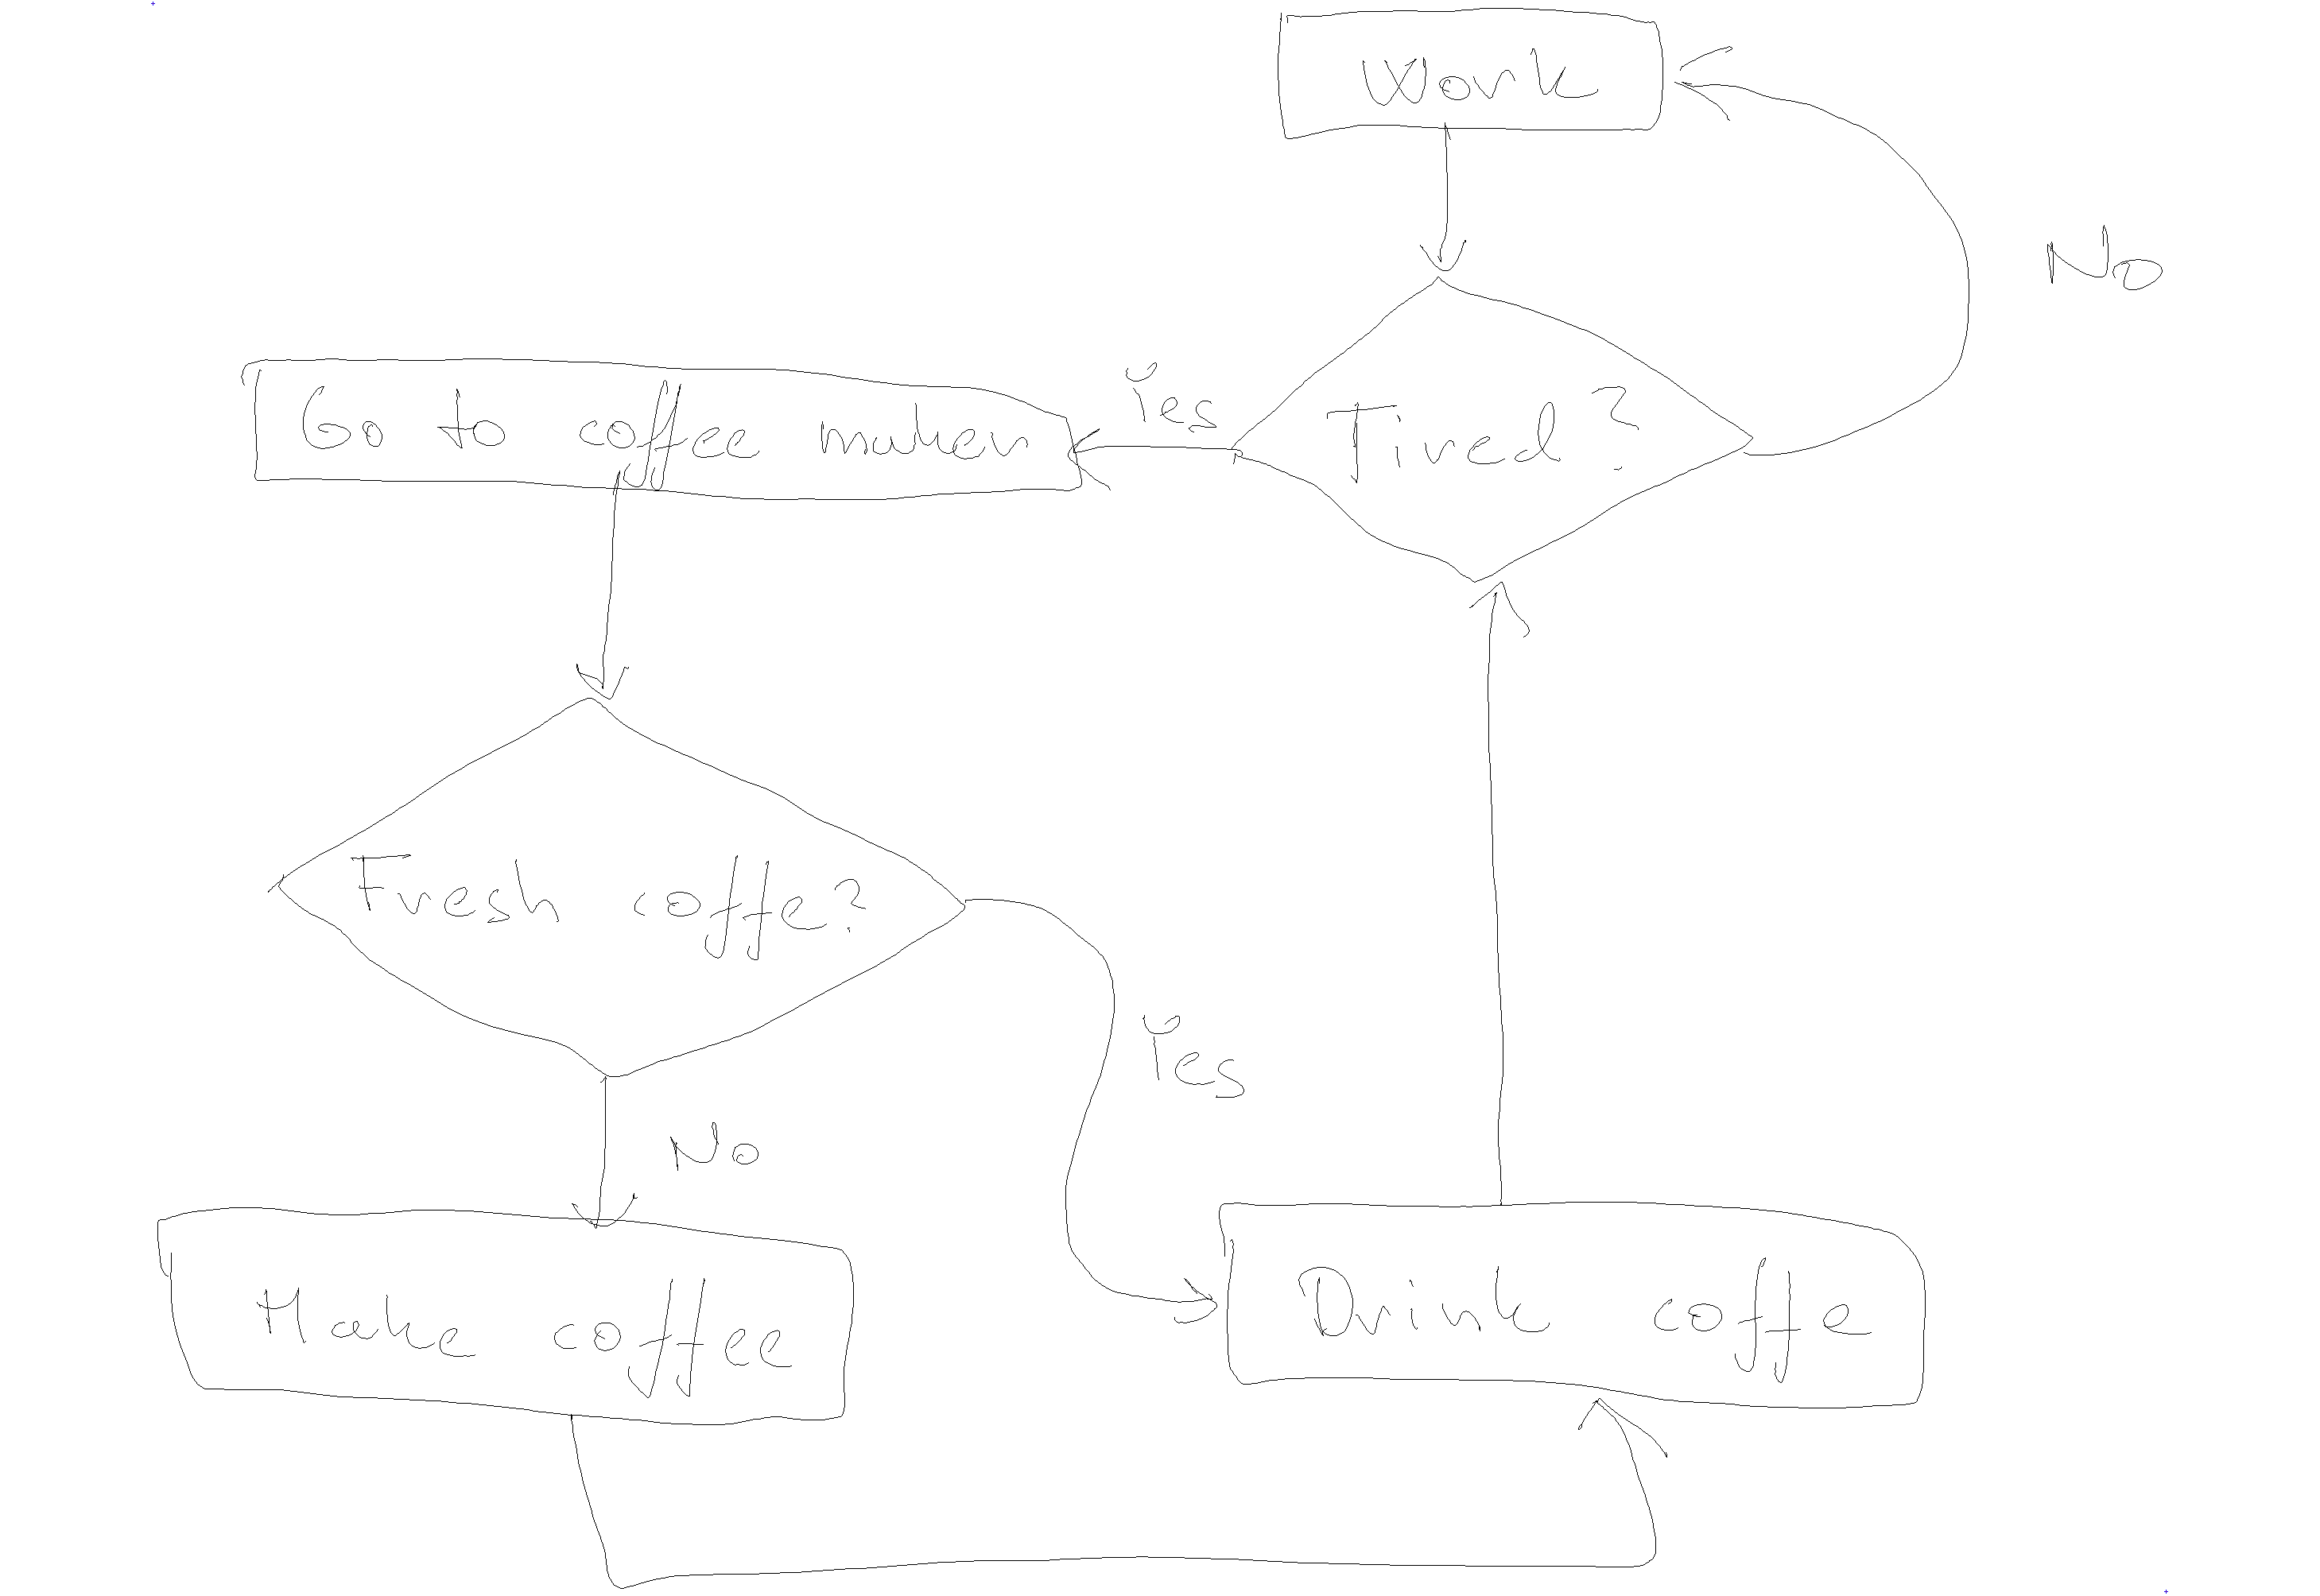 Work
No
Yes
Go to coffee maker
Tired?
Fresh coffe?
Yes
No
Make coffee
Drink coffe